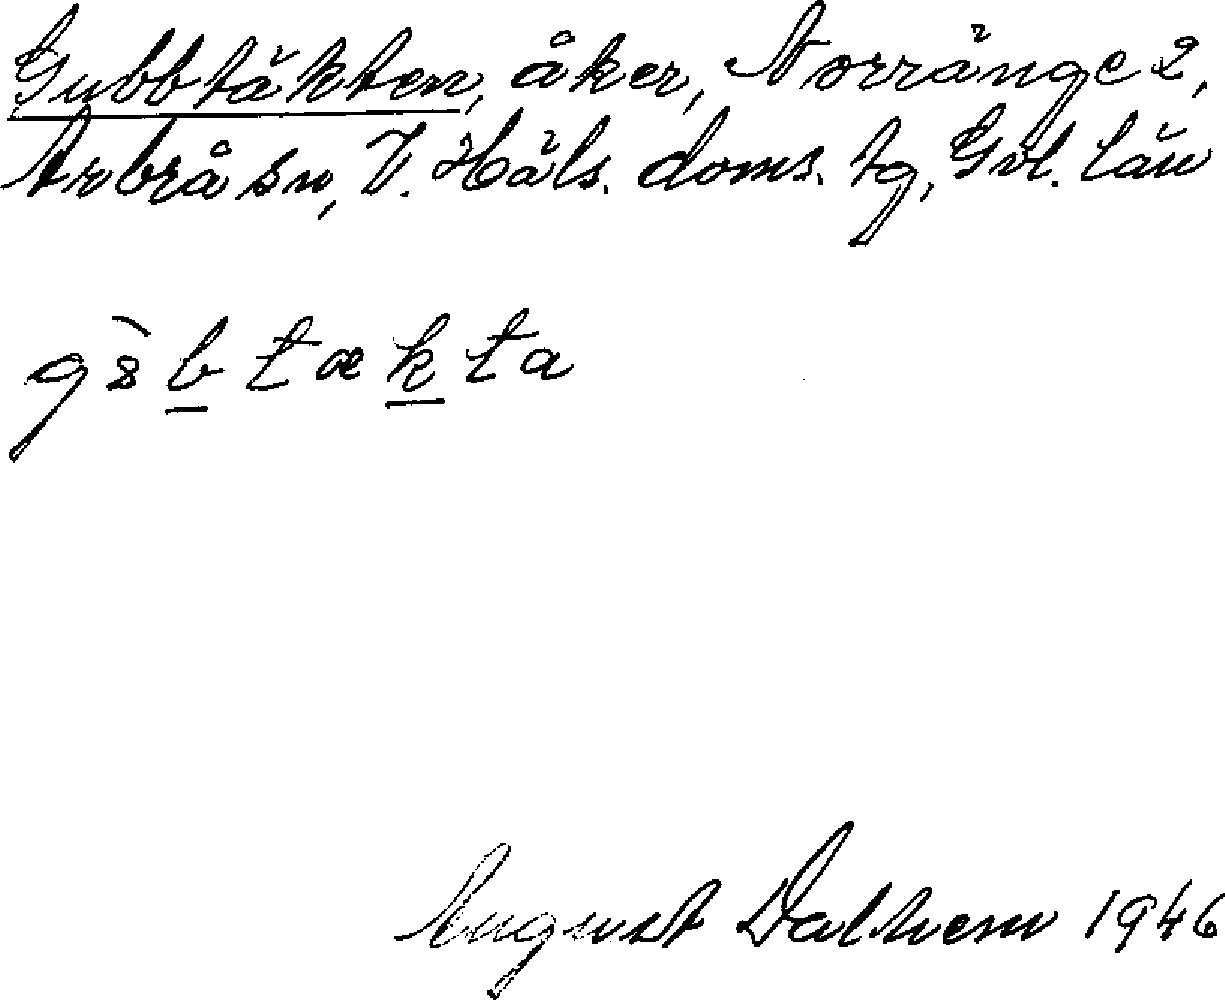 Gubbtäkten, åker, Norränge 2,
Arbrå sn, V. Häls. doms. tg, Gvl. län
August Dalhem 1946